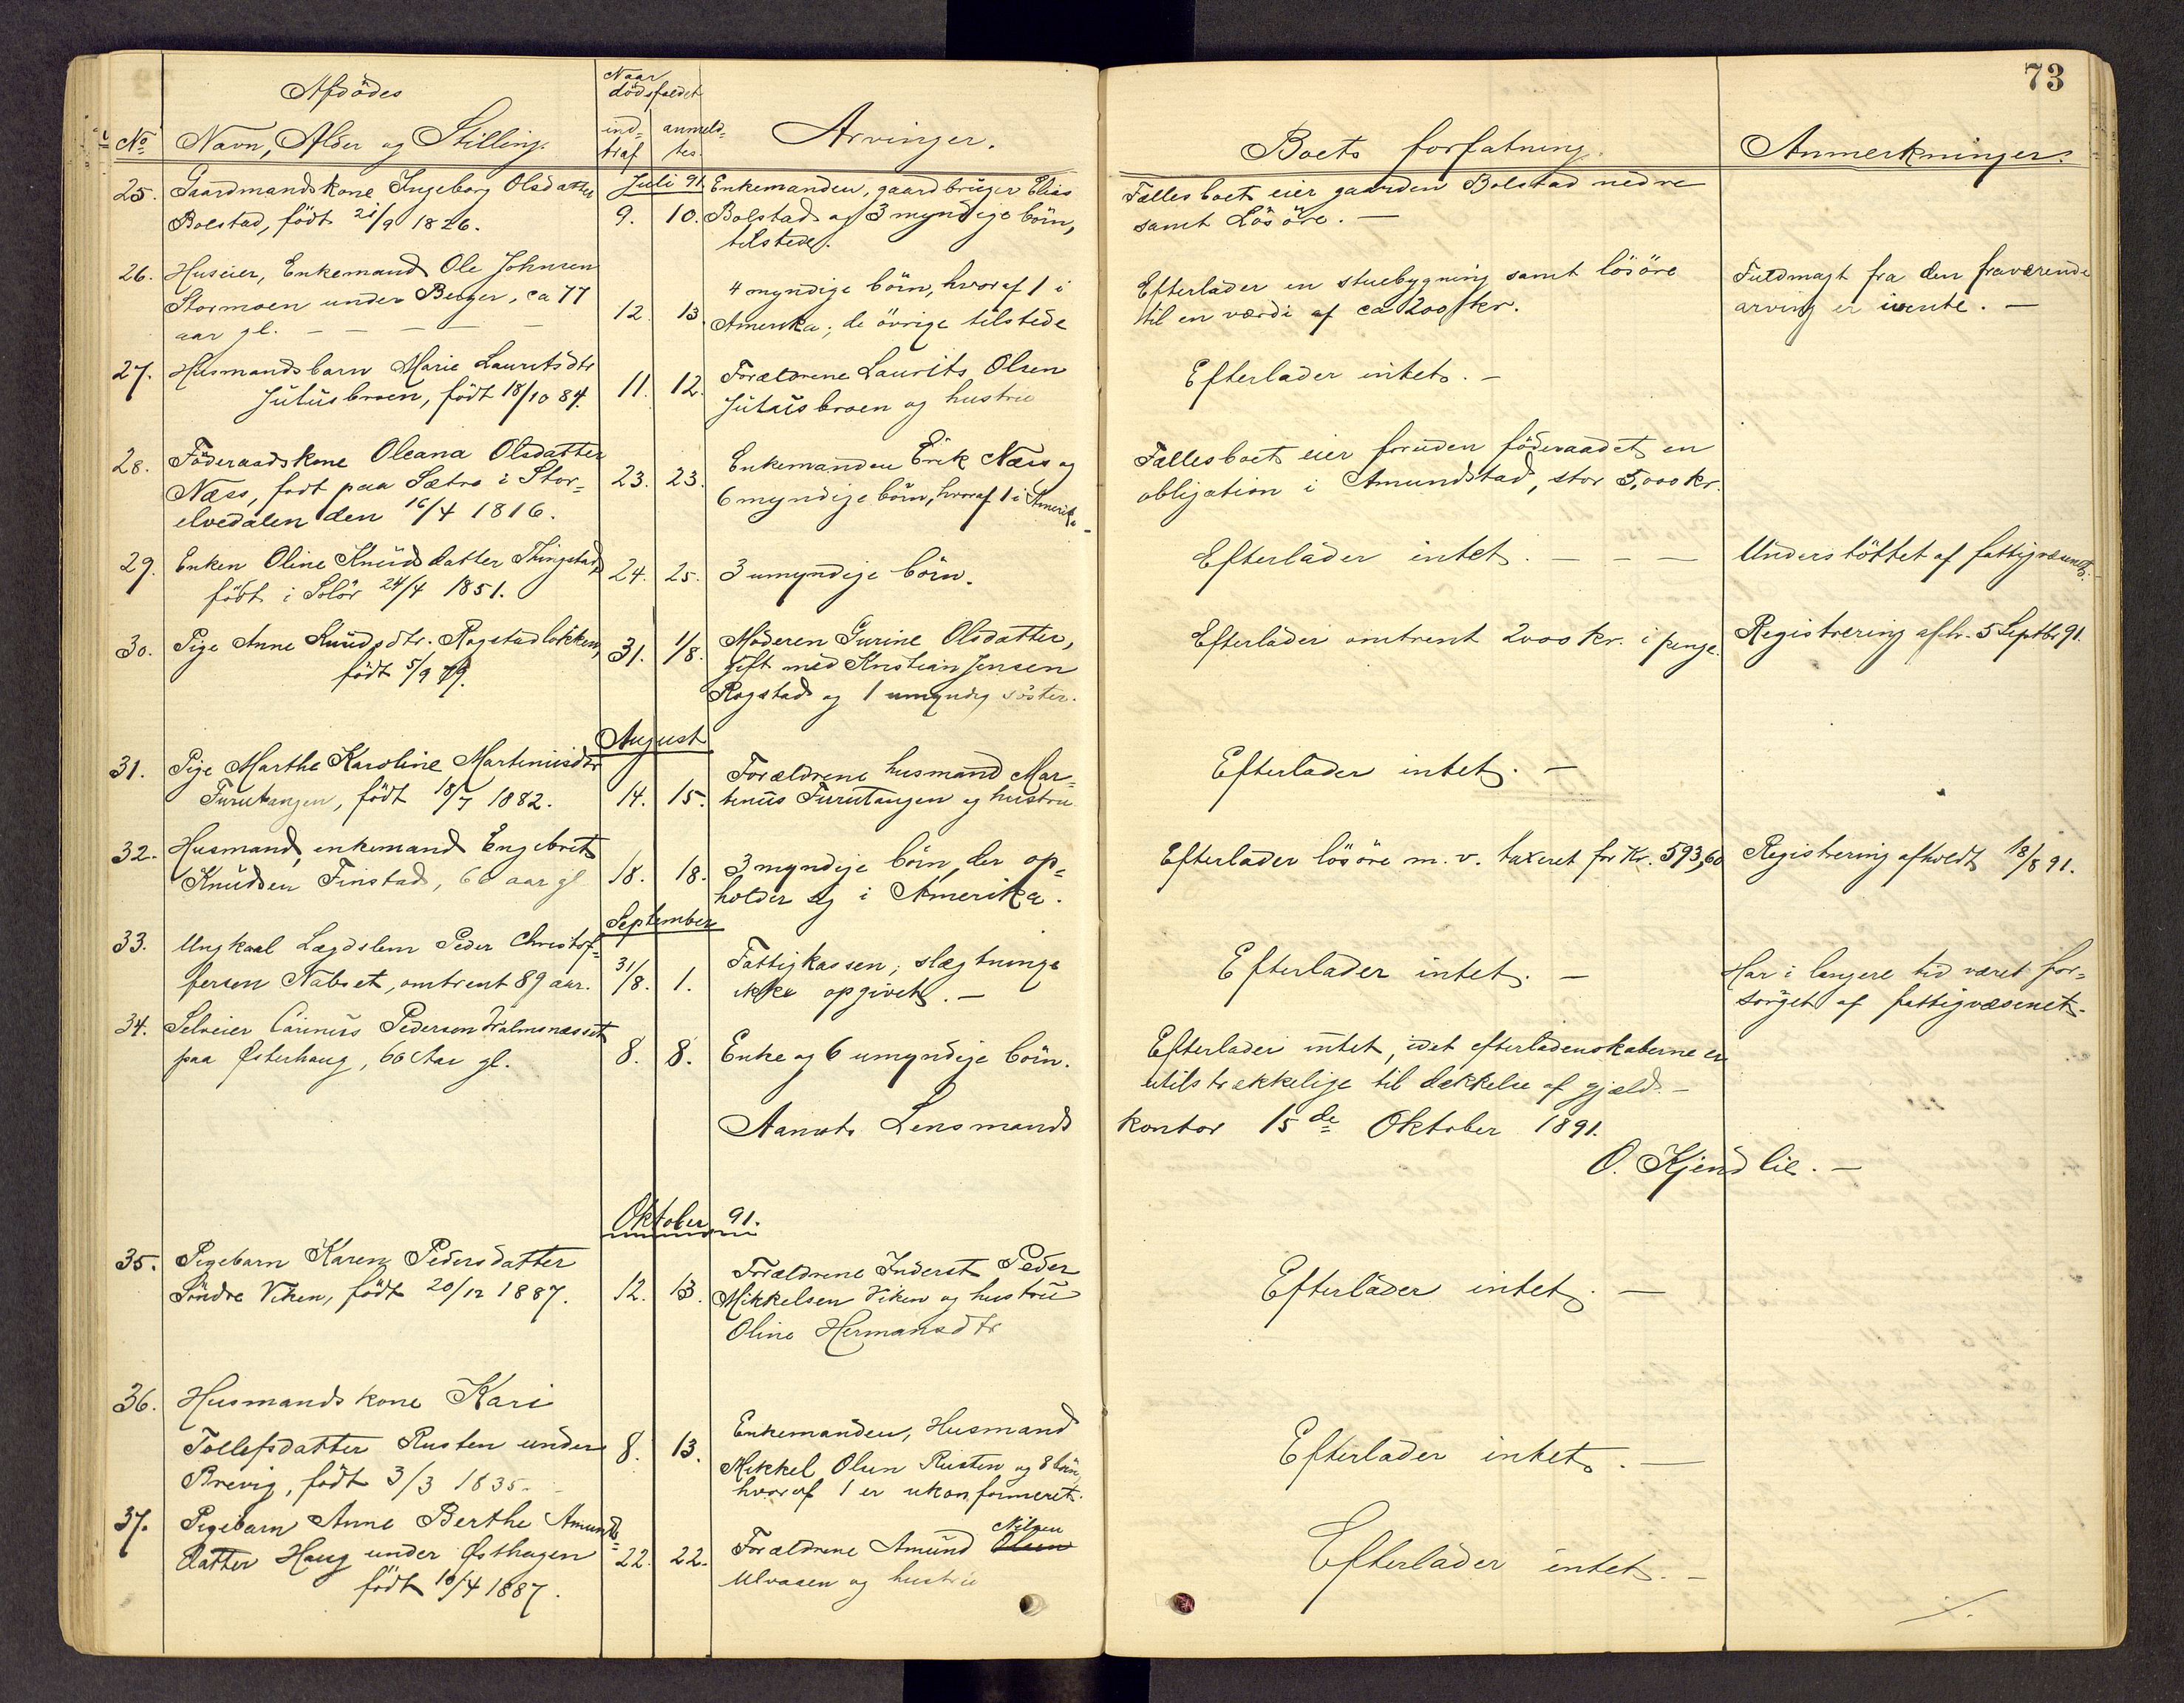 73
Afdödes
Naar dödsfaldet
No
Navn, Alder og Stilling.
ind-
traf
anmeld-
tes.
Arvinger.
Boets forfatning.
Anmerkninger.
Juli 91.
25. Gaardmandskone Ingeborg Olsdatter
Bolstad, født 21/9 1826.
9. 10.
Enkemanden, gaardbruger Elias
Bolstad og 3 myndige börn,
tilstede.
Fællesboet eier gaarden Bolstad nedre
samt Lösöre. —
26. Huseier, Enkemand Ole Johnsen
Stormoen under Berger, ca 77
aar gl. — — — — —
12. 13.
4 myndige börn, hvoraf 1 i
Amerika; de övrige tilstede
Efterlader en stuebygning samt lösöre
til en værdi af ca 200 kr.
Fuldmagt fra den fraværende
arving er ivente. —
27. Husmandsbarn Marie Lauritsdtr
Julusbroen, födt 18/10 84.
11. 12.
Forældrene Laurits Olsen
Julusbroen og hustru
Efterlader intet. —
28. Föderaadskone Oleana Olsdatter
Næss, fodt paa Sætre i Stor-
elvedalen den 16/4 1816.
23. 23.
Enkemanden Erik Næss og
6 myndige börn, hvoraf 1 i Amerika
Fællesboet eier foruden föderaadet en
obligation i Amundstad, stor 5,000 kr.
29. Enken Oline Knudsdatter Thingstad,
födt i Solör 24/4 1851.
24. 25.
3 umyndige börn.
Efterlader intet. — — —
Understöttet af fattigvæsnet.
30. Pige Anne Knudsdtr. Rogstadlökken,
födt 5/9 79.
31. 1/8.
Moderen Gurine Olsdatter,
gift med Kristian Jensen
Rogstad og 1 umyndig söster.
Efterlader omtrent 2000 kr. i penge.
Registrering afh. 5 Septbr 91.
August
31. Pige Marthe Karoline Martinusdtr
Furutangen, födt 18/7 1882.
14. 15.
Forældrene husmand Mar-
tinus Furutangen og hustru
Efterlader intet. —
32. Husmand, enkemand Engebret
Knudsen Finstad, 60 aar gl
18. 18.
3 myndige börn, der op-
holder sig i Amerika.
Efterlader lösöre m. v. taxeret for Kr. 593,60
Registrering afholdt 18/8 91.
September
33. Ungkaal Lægdslem Peder Christof-
fersen Nabset, omtrent 89 aar.
31/8. 1.
Fattigkassen; slægtninge
ikke opgivet. —
Efterlader intet. —
Har i længere tid været for-
sörget af fattigvæsenet.
34. Selveier Carinus Pedersen Malmnæsset
paa Østerhaug, 60 Aar gl.
8. 8.
Enke og 6 umyndige börn.
Efterlader intet, idet efterladenskaberne er
utilstrækkelige til dækkelse af gjæld. —
Aamots Lensmandskontor 15de Oktober 1891.
O. Kjendlie. —
Oktober 91.
35. Pigebarn Karen Pedersdatter
Söndre Viken, födt 20/12 1887.
12. 13.
Forældrene Inderst Peder
Mikkelsen Viken og hustru
Oline Hermansdtr
Efterlader intet. —
36. Husmandskone Kari
Tollefsdatter Rusten under
Brevig, födt 3/3 1835.
8. 13.
Enkemanden, Husmand
Mikkel Olsen Rusten og 8 börn,
hvoraf 1 er ukonfirmeret.
Efterlader intet. —
37. Pigebarn Anne Berthe Amunds-
datter Haug under Østhagen
födt 10/4 1887.
22. 22.
Forældrene Amund Olsen Nilsen
Ulvaaen og hustru
Efterlader intet. —